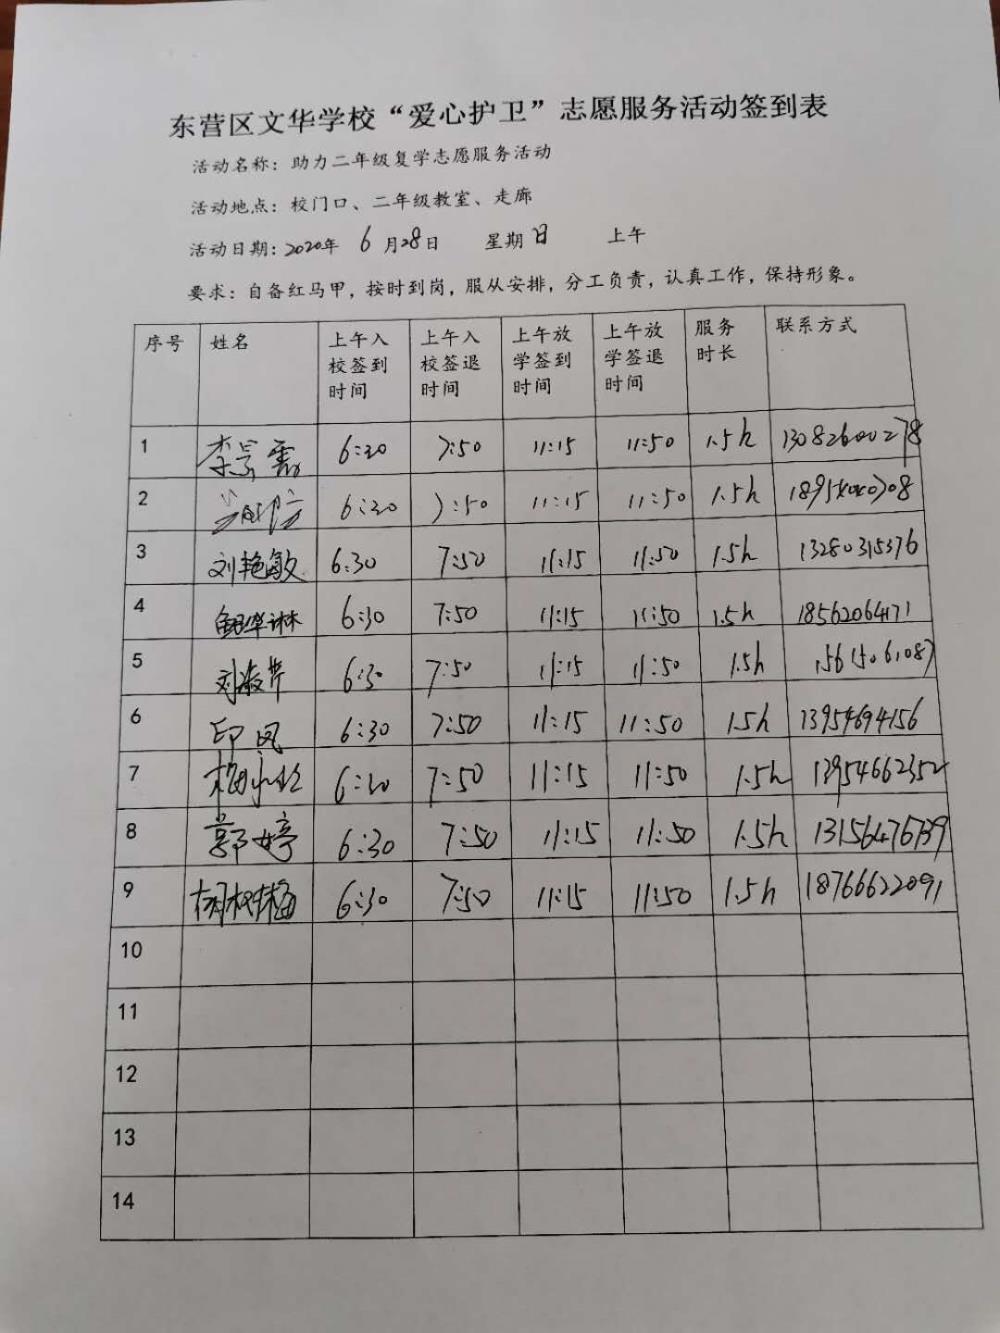 东营区文华学校“爱心护卫”志愿服务活动签到表
活动名称：助力二年级复学志愿服务活动
活动地点：校门口、二年级教室、走廊
活动日期：2020年 6 月28日 星期日 上午
要求：自备红马甲，按时到岗，服从安排，分工负责，认真工作，保持形象。
序号 姓名 上午入校签到时间 上午入校签退时间 上午放学签到时间 上午放学签退时间 服务时长 联系方式
1 李景霞 6:30 7:50 11:15 11:50 1.5h 13082600278
2 6:30 7:50 11:15 11:50 1.5h
3 刘艳敏 6:30 7:50 11:15 11:50 1.5h 13280315376
4 6:30 7:50 11:15 11:50 1.5h
5 刘淑芹 6:30 7:50 11:15 11:50 1.5h 15615061087
6 印凤 6:30 7:50 11:15 11:50 1.5h 13954694156
7 6:30 7:50 11:15 11:50 1.5h 13954662352
8 郭婷 6:30 7:50 11:15 11:50 1.5h 13156476739
9 胡树梅 6:30 7:50 11:15 11:50 1.5h 18766622091
10
11
12
13
14